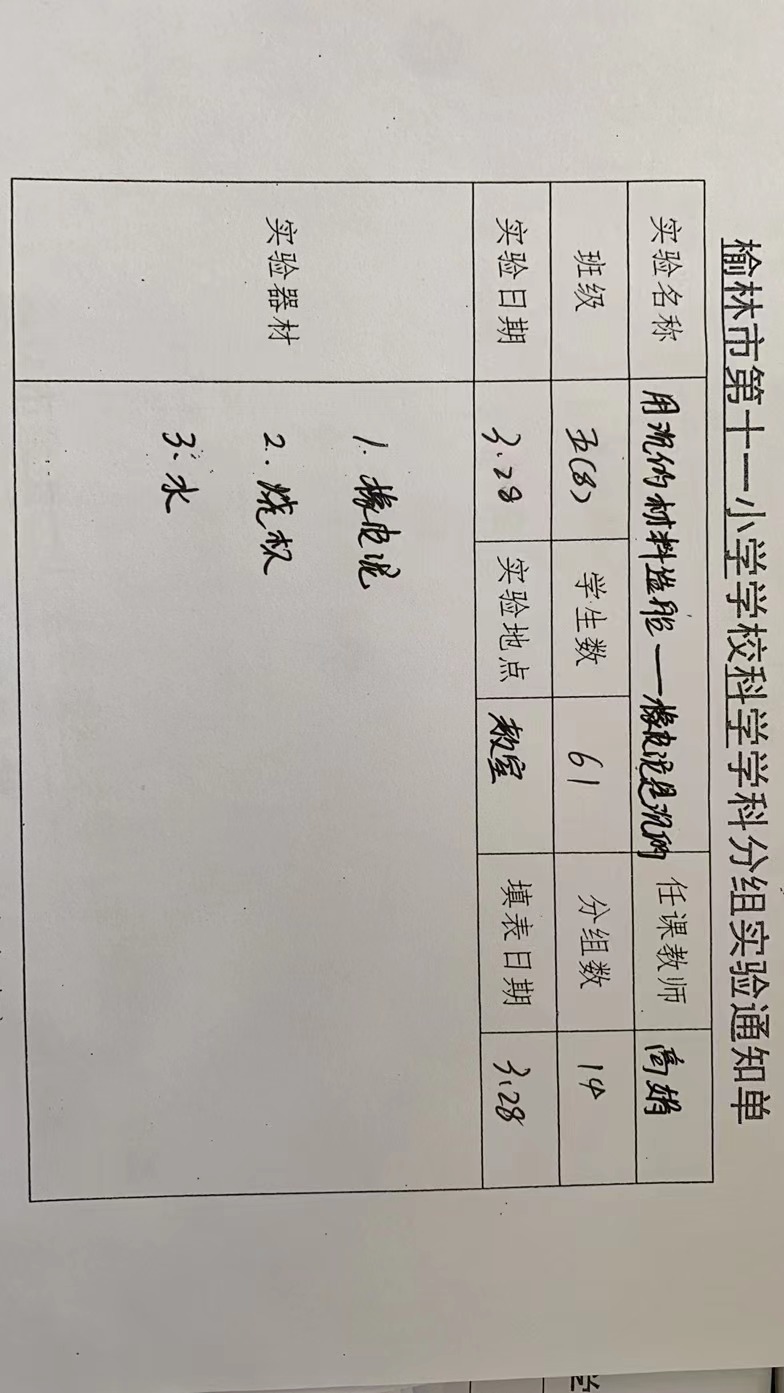 榆林市第十一小学学校科学学科分组实验通知单
实验名称 用沉的材料造船——橡皮泥是沉的 任课教师 高娟
班级 五(8) 学生数 61 分组数 14
实验日期 3.28 实验地点 教室 填表日期 3.28
实验器材
1. 橡皮泥
2. 烧杯
3. 水